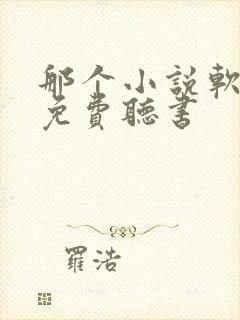 那个小説軟
免費聽書
羅浩